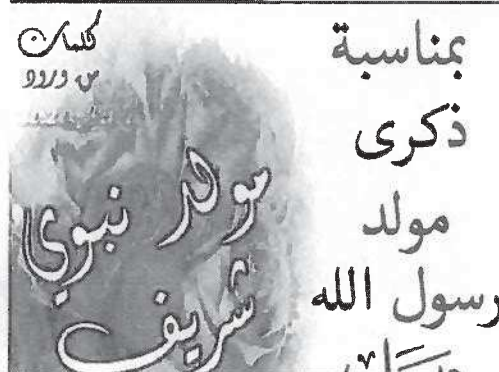 بمناسبة
ذكرى
مولد
رسول الله
كلمات
من ورود
مولد نبوي
شريف